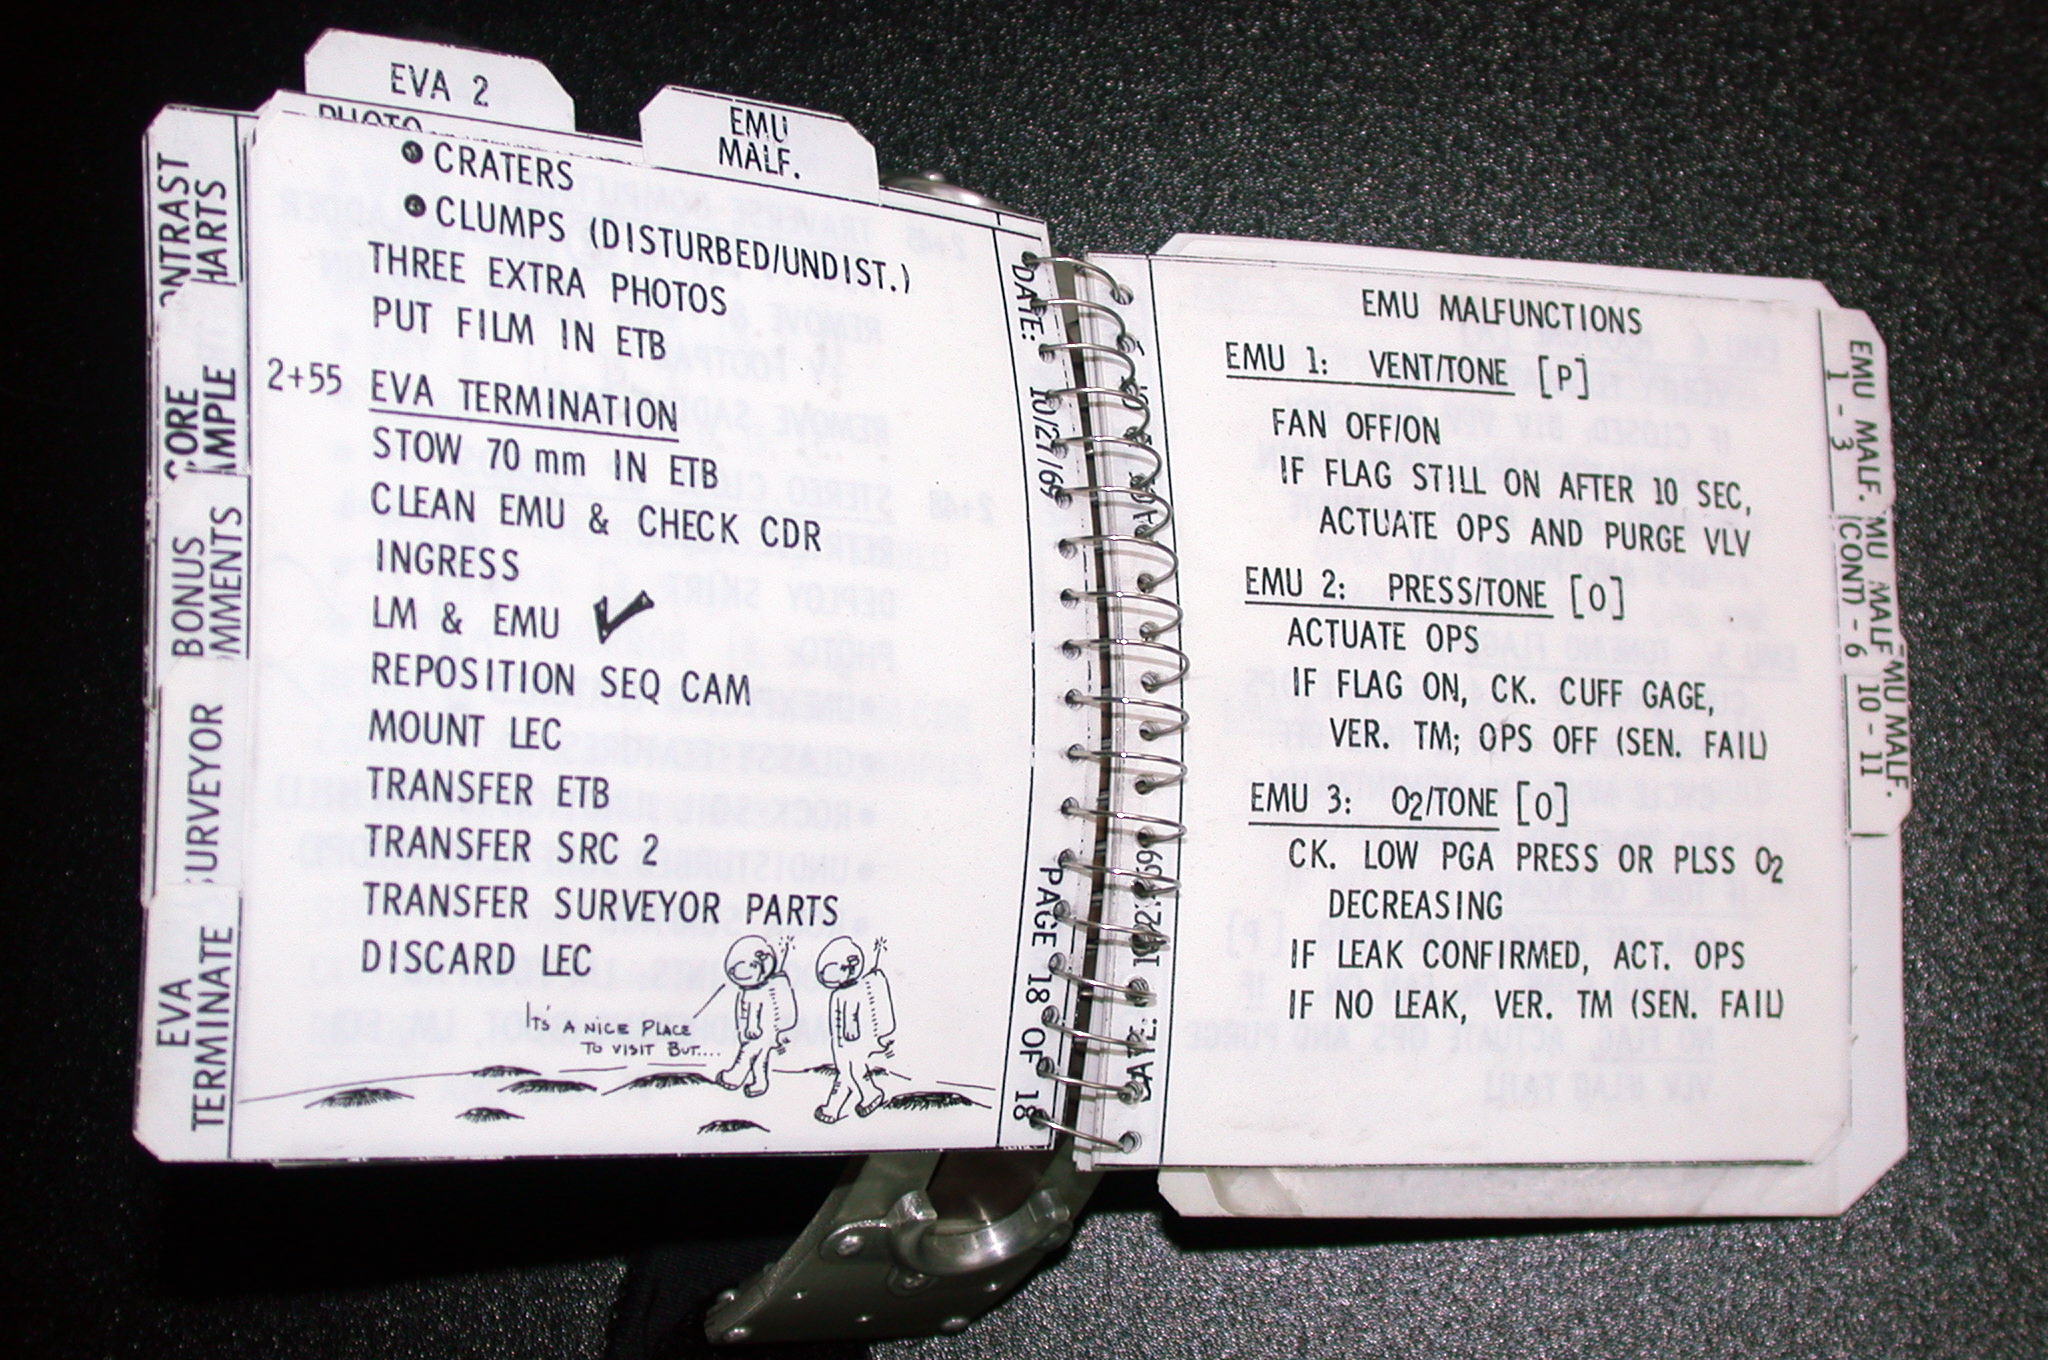 EVA 2
EMU
MALF.
PHOTO
CRATERS
CLUMPS (DISTURBED/UNDIST.)
THREE EXTRA PHOTOS
PUT FILM IN ETB
2+55 EVA TERMINATION
STOW 70 mm IN ETB
CLEAN EMU & CHECK CDR
INGRESS
LM & EMU ✓
REPOSITION SEQ CAM
MOUNT LEC
TRANSFER ETB
TRANSFER SRC 2
TRANSFER SURVEYOR PARTS
DISCARD LEC
IT'S A NICE PLACE
TO VISIT BUT....
DATE: 10/27/69
PAGE 18 OF 18
ONTRAST
HARTS
CORE
AMPLE
BONUS
MMENTS
SURVEYOR
EVA
TERMINATE
EMU MALFUNCTIONS
EMU 1: VENT/TONE [P]
FAN OFF/ON
IF FLAG STILL ON AFTER 10 SEC,
ACTUATE OPS AND PURGE VLV
EMU 2: PRESS/TONE [O]
ACTUATE OPS
IF FLAG ON, CK. CUFF GAGE,
VER. TM; OPS OFF (SEN. FAIL)
EMU 3: O2/TONE [O]
CK. LOW PGA PRESS OR PLSS O2
DECREASING
IF LEAK CONFIRMED, ACT. OPS
IF NO LEAK, VER. TM (SEN. FAIL)
DATE:
EMU MALF.
1 - 3
MU MALF
(CONT) - 6
MU MALF.
10 - 11